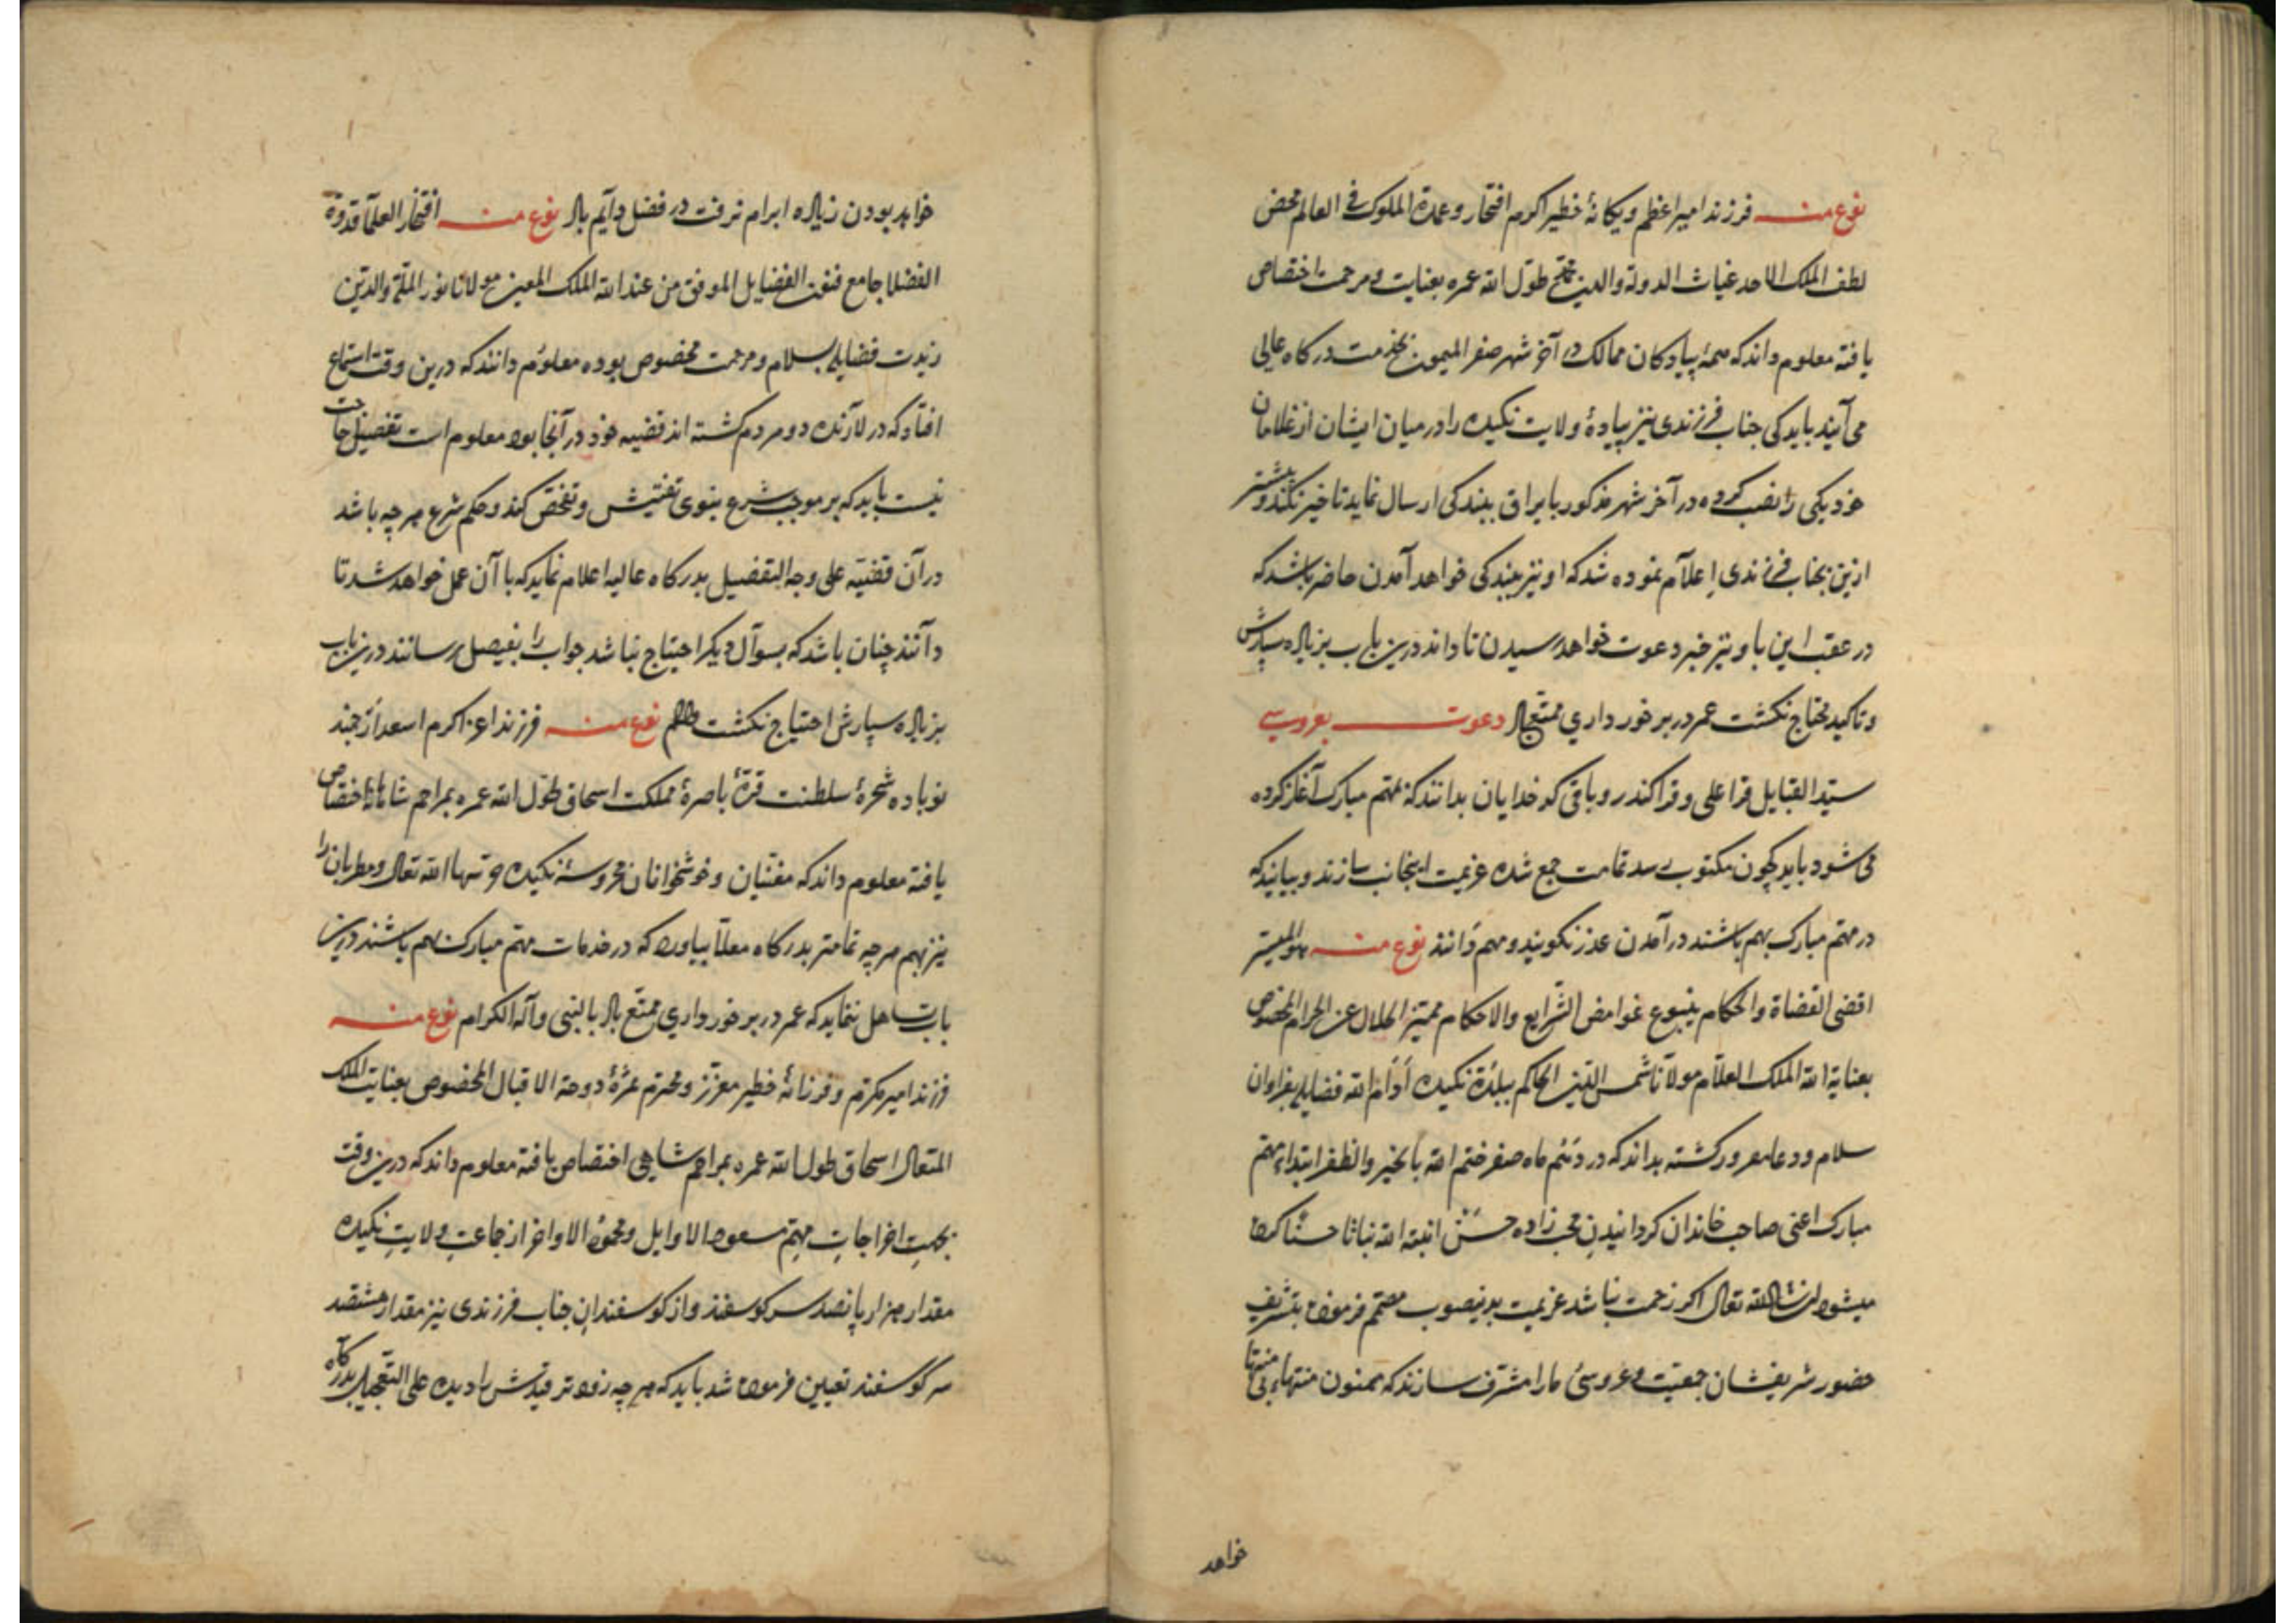 نوع منه فرزند امیر اعظم و یکانهٔ خطیر اکرم افتخار و عمدة الملوک فی العالم محض
لطف الملک الاحد غیاث الدولة والدین طوّل الله عمره بعنایت و مرحمت اختصاص
یافته معلوم داند که همهٔ پیادکان ممالک در آخر شهر صفر المیمون بخدمت درکاه عالی
می آیند باید کی جناب فرزندی نیز پیادهٔ ولایت نکیده را در میان ایشان از غلامان
خود یکی را نصب کرده در آخر شهر مذکور با یراق ببندکی ارسال نماید تا خیر نکند و پیشتر
ازین بجناب فرزندی اعلام نموده شد که او نیز ببندکی خواهد آمدن حاضر باشد که
در عقب این باو نیز خبر دعوت خواهد رسیدن تا داند درین باب بزیاده سپارش
و تاکید محتاج نکشت عمر در برخورداری ممتّع باد دعوت بعروسی
سیّد القبایل قرا علی و قرا کندر و باقی کدخدایان بدانند که مهّم مبارک آغاز کرده
می شود باید کچون مکتوب برسد تمامت جمع شده عزیمت اینجانب سازند و بیایند که
در مهّم مبارک بهم باشند در آمدن عذر نکویند و مهم دانند نوع منه هو المیسّر
اقضی القضاة والحکام ینبوع غوامض الشّرایع والاحکام ممیّز الحلال عن الحرام المخصوص
بعنایة الله الملک العلاّم مولانا شمس الدّین الحاکم ببلدة نکیده أدام الله فضایله بفراوان
سلام و دعا معرور کشته بداند که در دهم ماه صفر ختم الله بالخیر والظفر ابتداء مهّم
مبارک اعنی صاحب خاندان کردانیدن محب زاده حسن انبته الله نباتا حسنًا کرده
میشود ان شاالله تعالی اکر زحمت نباشد عزیمت بدینصوب مصمّم فرموده بتشریف
حضور شریفشان جمعیّت و عروسئ مارا مشرّف سازند که ممنون منتهاء بی منتها
خواهد
خواهد بودن زیاده ابرام نرفت در فضل دایم باد نوع منه افتخار العلمآ قدوة
الفضلا جامع فنون الفضایل الموفق من عند الله الملک المعین مولانا نور الملّة والدّین
زیدت فضایله بسلام و مرحمت مخصوص بوده معلوم دانند که درین وقت استماع
افتاد که در لارنده دو مردم کشته اند قضیه خود در آنجا بود معلوم است تفصیل حاجت
نیست باید که بر موجب شرع نبوی تفتیش و تفحّص کند و حکم شرع هر چه باشد
در آن قضیّه علی وجه التفضیل بدرکاه عالیه اعلام نماید که با آن عمل خواهد شد تا
دانند چنان باشد که بسوآل دیکر احتیاج نباشد جواب را بفیصل رسانند درین باب
بزیاده سپارش احتیاج نکشت نوع منه فرزند اعز اکرم اسعد ارجمند
نوباده شجرهٔ سلطنت قرّهٔ باصرهٔ مملکت اسحاق طوّل الله عمره بمراحم شاهانه اختصاص
یافته معلوم داند که مغنّیان و خوشخوانان محروسهٔ نکیده حرسها الله تعالی و مطربان را
نیز بهم هر چه تمامتر بدرکاه معلّا بیاورد که در خدمات مهّم مبارک بهم باشند درین
باب تساهل ننماید که عمر در برخورداری ممتّع باد بالنبی و آله الکرام نوع منه
فرزند امیر مکرّم و فرزانهٔ خطیر معزّز و محترم ثمرهٔ دوحة الاقبال المخصوص بعنایت الملک
المتعال اسحاق طول الله عمره بمراحم شاهی اختصاص یافته معلوم داند که درین وقت
بجهت اخراجات مهّم مسعود الاوایل و محمود الاواخر از جماعت ولایت نکیده
مقدار هزار پانصد سر کوسفند و از کوسفندان جناب فرزندی نیز مقدار هشتصد
سر کوسفند تعیین فرموده شد باید که هر چه زودتر قیدش را دیده علی التّعجیل بدرکاه